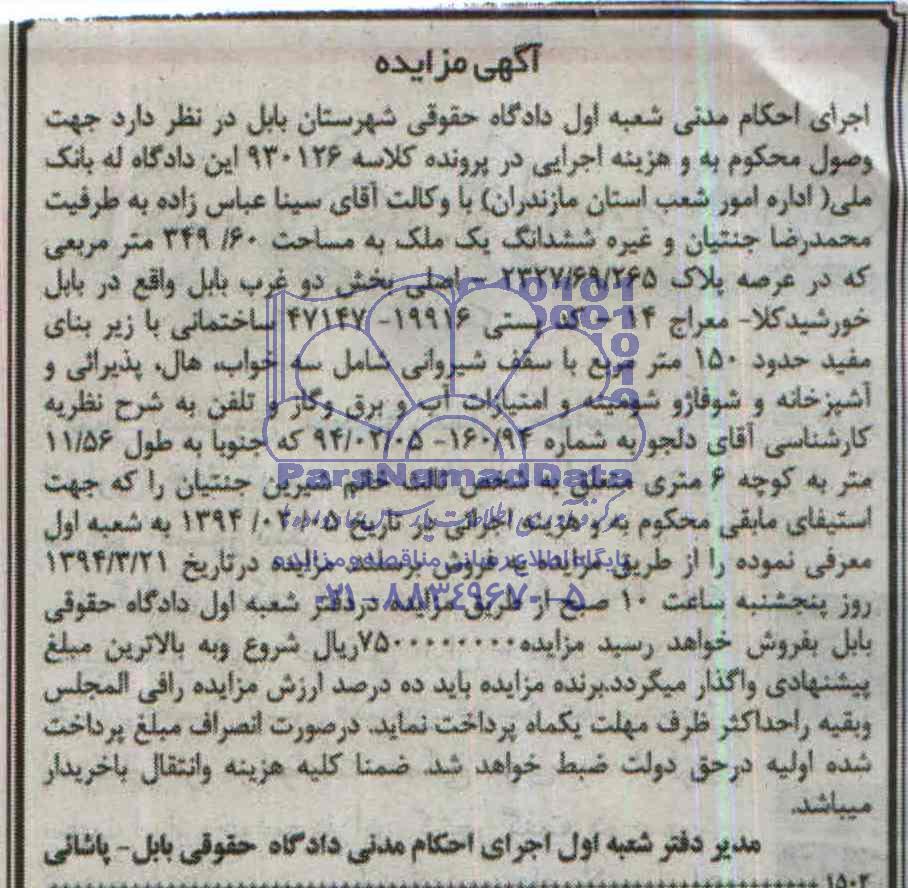 آگهی مزایده
اجرای احکام مدنی شعبه اول دادگاه حقوقی شهرستان بابل در نظر دارد جهت
وصول محکوم به و هزینه اجرایی در پرونده کلاسه ۹۳۰۱۲۶ این دادگاه له بانک
ملی( اداره امور شعب استان مازندران) با وکالت آقای سینا عباس زاده به طرفیت
محمدرضا جنتیان و غیره ششدانگ یک ملک به مساحت ۶۰/ ۳۴۹ متر مربعی
که در عرصه پلاک ۲۳۲۷/۶۹/۲۶۵ - اصلی بخش دو غرب بابل واقع در بابل
خورشیدکلا- معراج ۱۴ - کد پستی ۱۹۹۱۶- ۴۷۱۴۷ ساختمانی با زیر بنای
مفید حدود ۱۵۰ متر مربع با سقف شیروانی شامل سه خواب، هال، پذیرائی و
آشپزخانه و شوفاژو شومینه و امتیازات آب و برق وگاز و تلفن به شرح نظریه
کارشناسی آقای دلجو به شماره ۱۶۰/۹۴- ۹۴/۰۲/۰۵ که جنوبا به طول ۱۱/۵۶
متر به کوچه ۶ متری متعلق به شخص ثالث خانم شیرین جنتیان را که جهت
استیفای مابقی محکوم به و هزینه اجرائی در تاریخ ۰۵/ ۰۲/ ۱۳۹۴ به شعبه اول
معرفی نموده را از طریق مزایده به فروش برساند. مزایده درتاریخ ۱۳۹۴/۳/۲۱
روز پنجشنبه ساعت ۱۰ صبح از طریق مزایده دردفتر شعبه اول دادگاه حقوقی
بابل بفروش خواهد رسید مزایده۷۵۰۰۰۰۰۰۰۰ریال شروع وبه بالاترین مبلغ
پیشنهادی واگذار میگردد.برنده مزایده باید ده درصد ارزش مزایده رافی المجلس
وبقیه راحداکثر ظرف مهلت یکماه پرداخت نماید. درصورت انصراف مبلغ پرداخت
شده اولیه درحق دولت ضبط خواهد شد. ضمنا کلیه هزینه وانتقال باخریدار
میباشد.
مدیر دفتر شعبه اول اجرای احکام مدنی دادگاه حقوقی بابل- پاشائی
۱۵۰۲
ParsNamadData
پایگاه اطلاع رسانی مناقصه و مزایده
۰۲۱-۸۸۳۴۹۶۷۰-۵